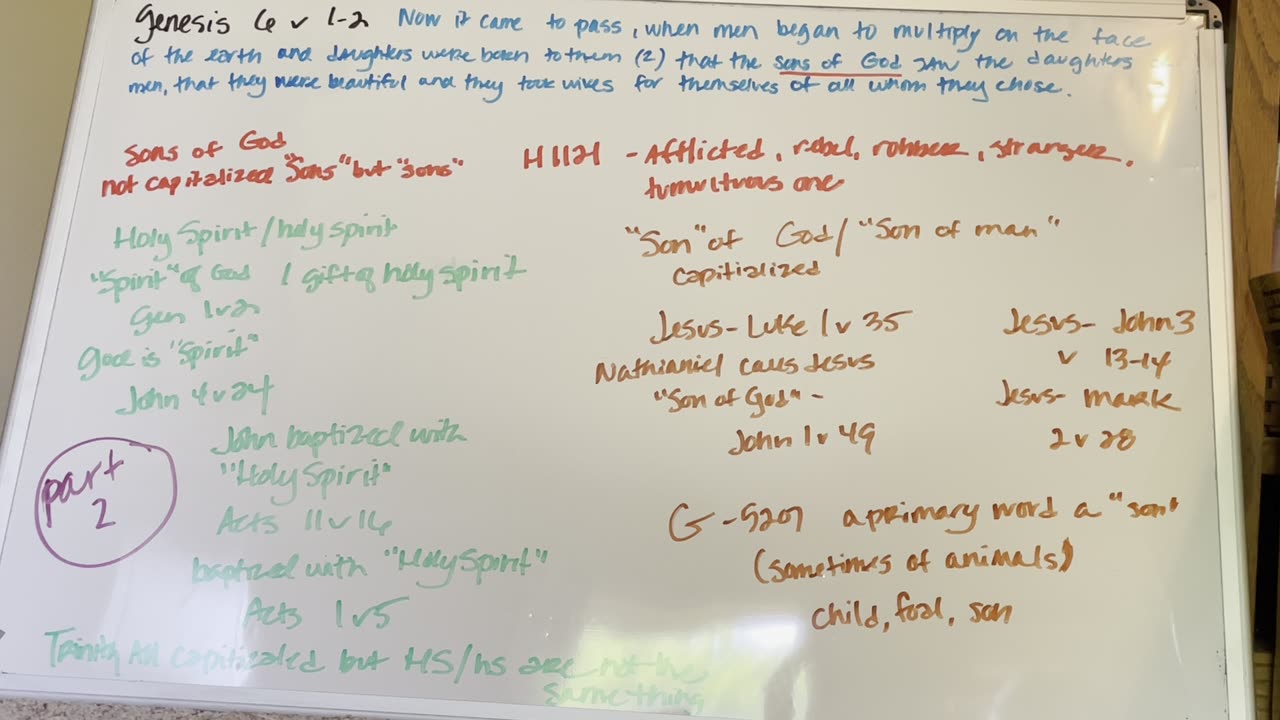 Genesis 6 v 1-2 Now it came to pass, when men began to multiply on the face
of the earth and daughters were born to them (2) that the sons of God saw the daughters
men, that they were beautiful and they took wives for themselves of all whom they chose.
Sons of God
not capitalized "Sons" but "sons"
H1121 - Afflicted, rebel, robber, stranger,
tumultuous one
Holy Spirit/holy spirit
"Spirit" of God / gift of holy spirit
Gen 1v2
God is "Spirit"
John 4v24
John baptized with
"Holy Spirit"
Acts 11v16
baptized with "Holy Spirit"
Acts 1v5
Trinity All capitizaled but HS/hs are not the
same thing
part
2
"Son" of God/ "Son of man"
capitialized
Jesus- Luke 1v35
Nathianiel calls Jesus
"Son of God" -
John 1v49
Jesus- John 3
v 13-14
Jesus- mark
2v28
G-5207 a primary word a "son"
(sometimes of animals)
child, foal, son